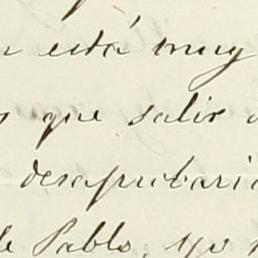 está muy
que salir
desaprobaria
de Pablo, yo